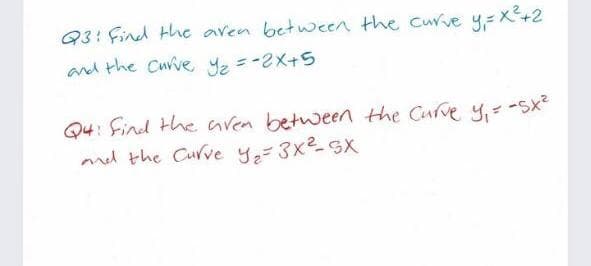 Q3: Find the area between the curve y₁= x²+2
and the curve y₂ = -2x+5
Q4: Find the area between the curve y₁ = -5x²
and the curve y₂= 3x²-5x